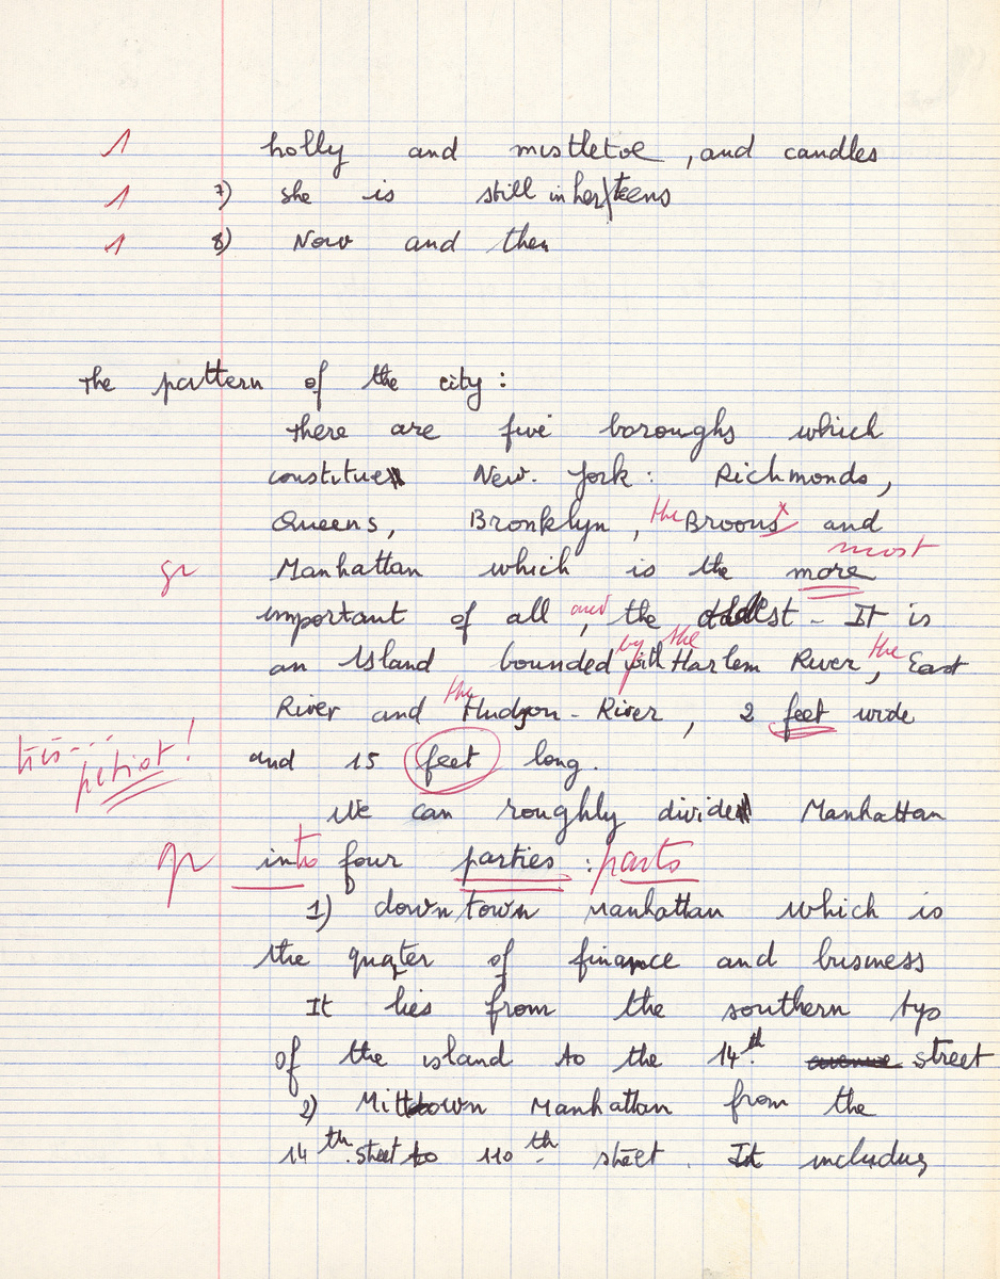 1 holly and mistletoe , and candles
1 7) she is still in her teens
1 8) Now and then
The pattern of the city :
There are five boroughs which
constitue New. York : Richmonds,
Queens, Bronklyn , the Broons x and
most
gr Manhattan which is the more
important of all and , the st - It is
by the the
an Island bounded with Harlem River, East
the
River and Hudson - River , 2 feet wide
très--- petiot !
and 15 feet long .
We can roughly divide Manhattan
gr into four parties : parts
1) down town Manhattan which is
the quater of finance and business
It lies from the southern typ
of the island to the 14th. avenue street
2) Mittown Manhattan from the
14th. street to 110th. street . It includes